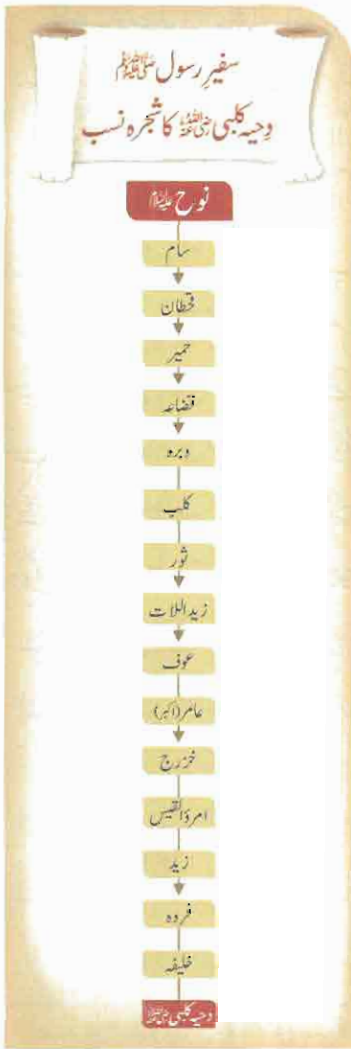 سفیرِ رسول ﷺ
دِحیہ کلبی رضی اللہ عنہ کا شجرہ نسب
نوح علیہ السلام
سام
قحطان
حمیر
قضاعہ
وبرہ
کلب
ثور
زید اللات
عوف
عامر (اکبر)
خزرج
امرؤ القیس
زید
فروہ
خلیفہ
دحیہ کلبی رضی اللہ عنہ